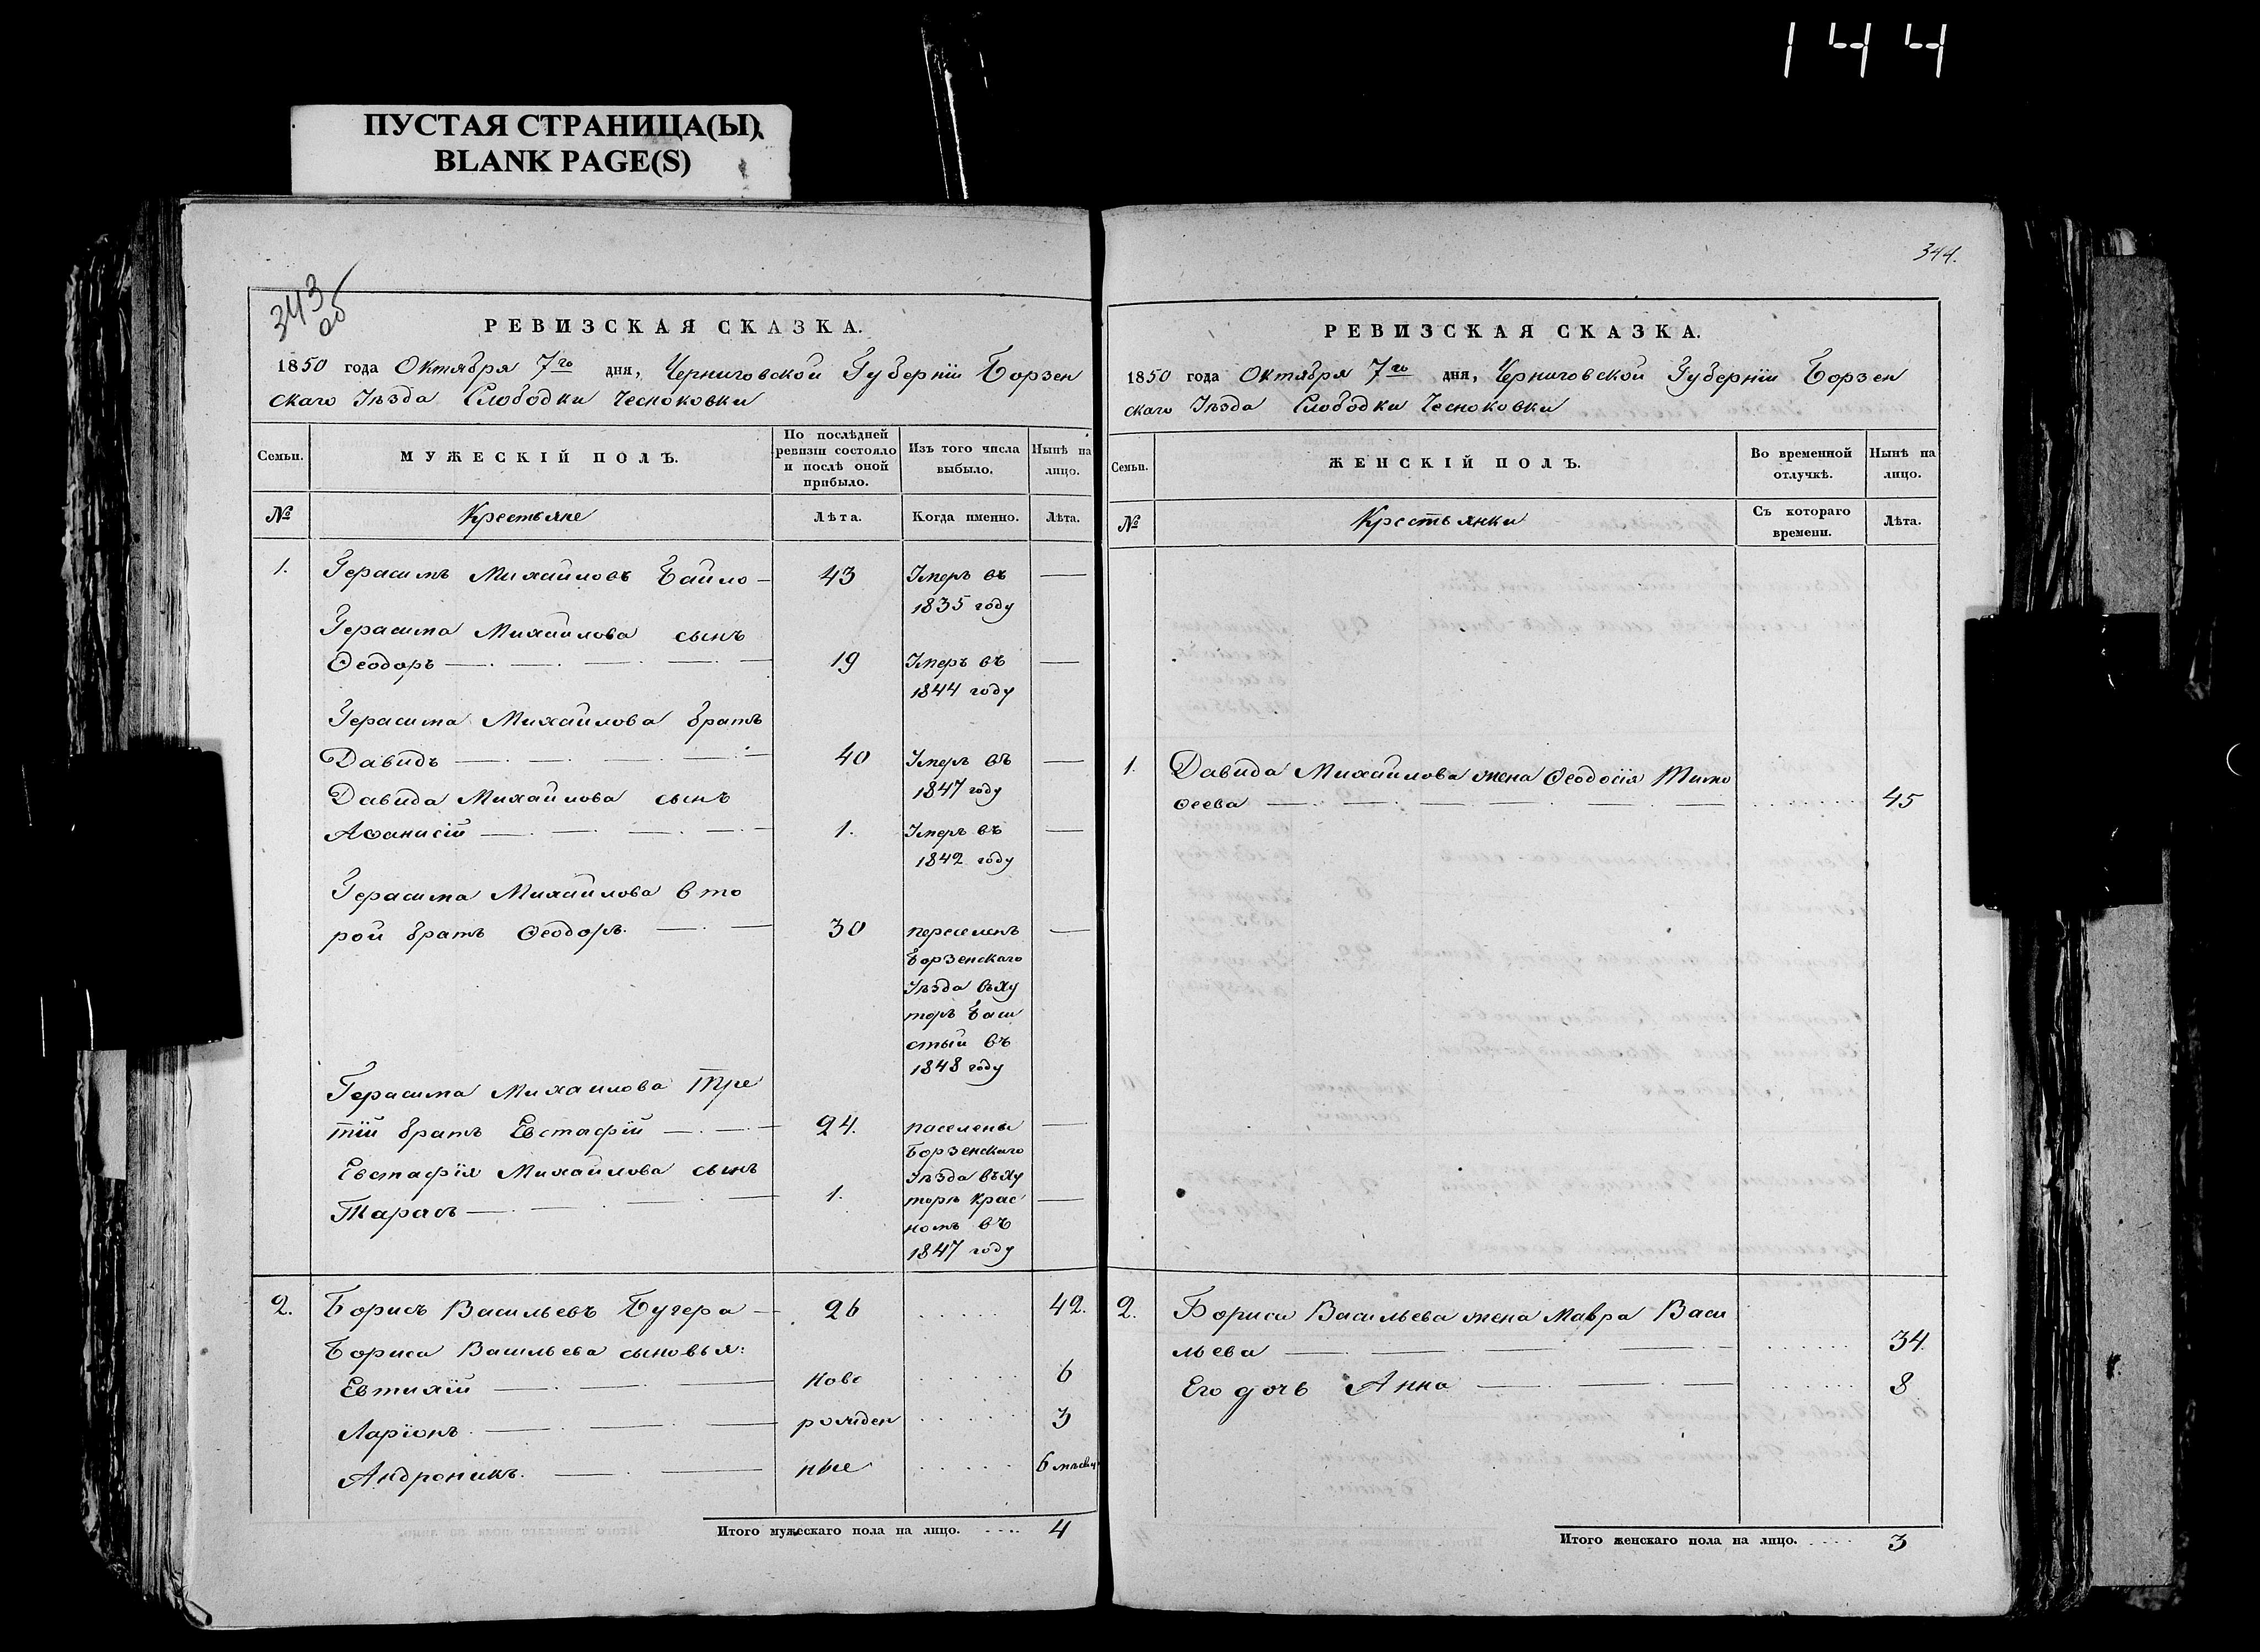 144
ПУСТАЯ СТРАНИЦА(Ы)
BLANK PAGE(S)
343
об
РЕВИЗСКАЯ СКАЗКА.
1850 года Октября 7го дня, Черниговской Губерніи Борзен
скаго Уѣзда Слободки Чесноковки
Семьи.
МУЖЕСКІЙ ПОЛЪ.
По послѣдней ревизіи состояло и послѣ оной прибыло.
Изъ того числа выбыло.
Нынѣ на лицо.
№ Крестьяне Лѣта. Когда именно. Лѣта.
1. Герасимъ Михайловъ Байло — 43 Умеръ въ —
1835 году
Герасима Михайлова сынъ
Ѳеодоръ — 19 Умеръ въ —
1844 году
Герасима Михайлова братъ
Давидъ — 40 Умеръ въ —
1847 году
Давида Михайлова сынъ
Аѳанасій — 1. Умеръ въ —
1842 году
Герасима Михайлова вто
рой братъ Ѳеодоръ. — 30 переселенъ —
Борзенскаго
Уѣзда въ ху
торъ
стый въ
1848 году
Герасима Михайлова тре
тій братъ Евстафій — 24. поселены —
Борзенскаго
Евстафія Михайлова сынъ Уѣзда въ ху
Тарасъ — 1. торѣ Крас —
номъ въ
1847 году
2. Борисъ Васильевъ Бугера — 26 42.
Бориса Васильева сыновья:
Евтихій — ново 6
Ларіонъ. — рожден 3
Андроникъ. — ные 6 мѣсяц
Итого мужескаго пола на лицо. 4
344.
РЕВИЗСКАЯ СКАЗКА.
1850 года Октября 7го дня, Черниговской Губерніи Борзен
скаго Уѣзда Слободки Чесноковки
Семьи.
ЖЕНСКІЙ ПОЛЪ.
Во временной отлучкѣ.
Нынѣ на лицо.
№ Крестьянки Съ котораго времени. Лѣта.
1. Давида Михайлова жена Ѳеодосія Тимо
ѳеева — 45
2. Бориса Васильева жена Мавра Васи
льева — 34.
Его дочь Анна — 8
Итого женскаго пола на лицо. 3